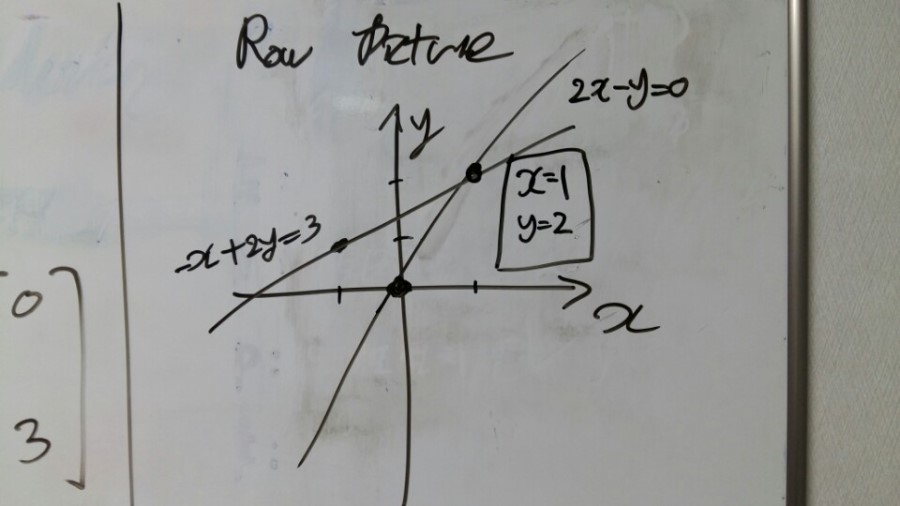 Row Picture
2x-y=0
y
x=1
y=2
-x+2y=3
x
0
3